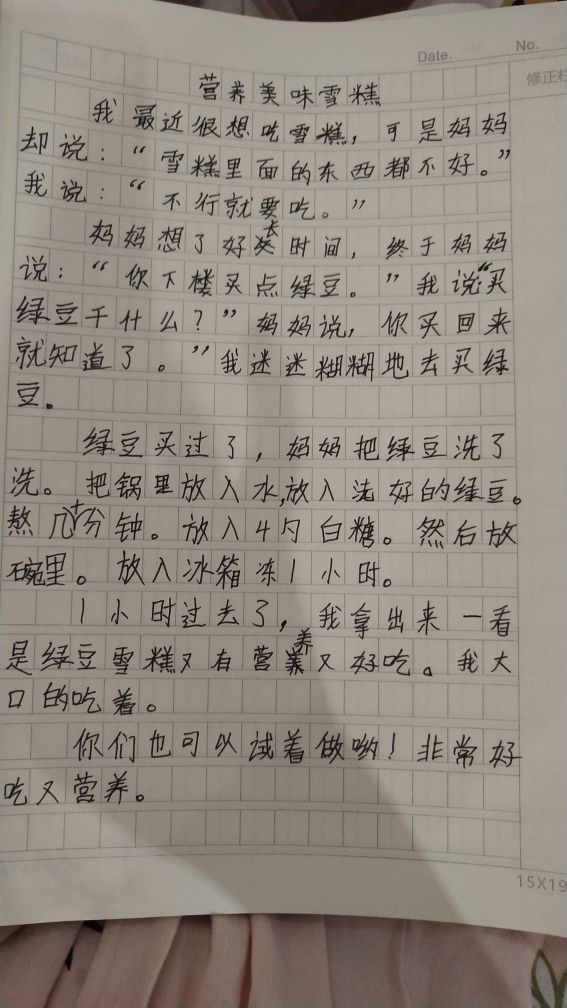 Date.
No.
修正栏
营养美味雪糕
我最近很想吃雪糕，可是妈妈
却说：“雪糕里面的东西都不好。”
我说：“不行就要吃。”
妈妈想了好长时间，终于妈妈
说：“你下楼买点绿豆。”我说“买
绿豆干什么？”妈妈说，你买回来
就知道了。”我迷迷糊糊地去买绿
豆。
绿豆买过了，妈妈把绿豆洗了
洗。把锅里放入水，放入洗好的绿豆。
熬几十分钟。放入4勺白糖。然后放
碗里。放入冰箱冻1小时。
1小时过去了，我拿出来一看
是绿豆雪糕又有营养又好吃。我大
口的吃着。
你们也可以试着做哟！非常好
吃又营养。
15X19